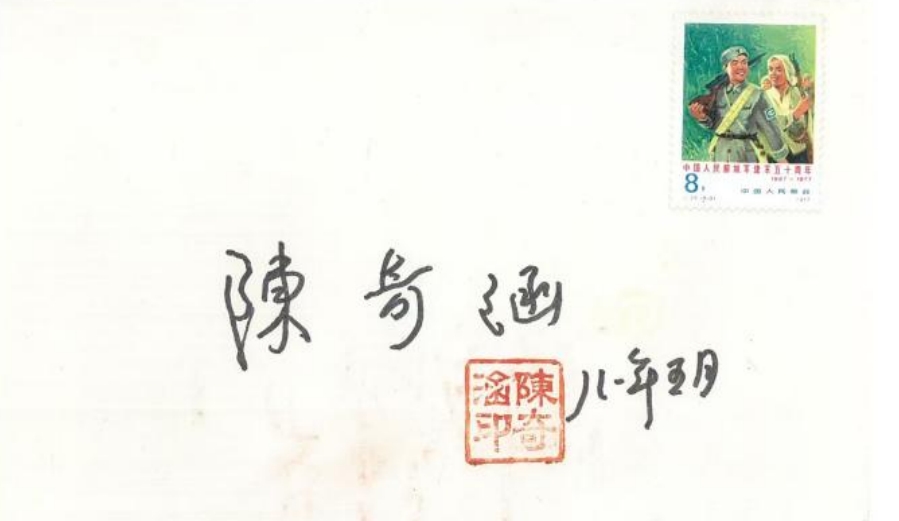 中国人民解放军建军五十周年
1927-1977
8分 中国人民邮政
1977
陳奇涵
陳奇涵印
八一年五月